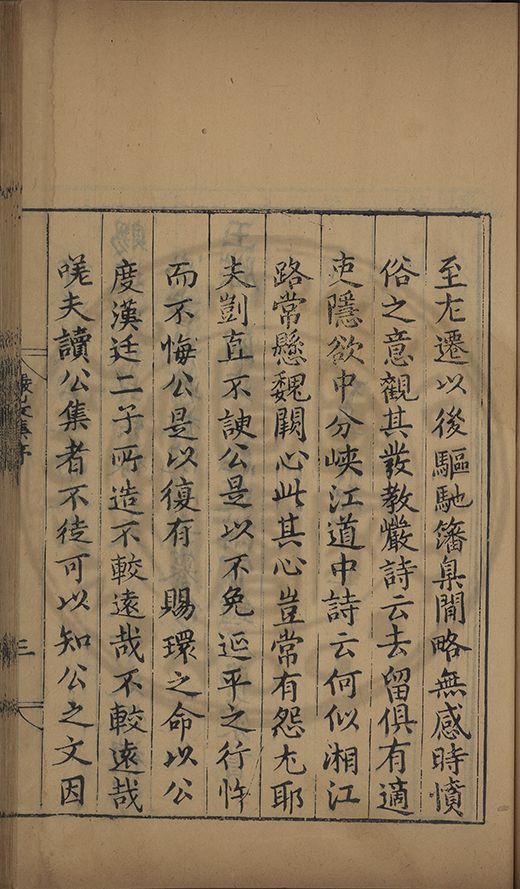 至尤遷以後驅馳籓臬間略無感時憤
俗之意觀其發教嚴詩云去留俱有適
吏隱欲中分峽江道中詩云何似湘江
路常懸魏闕心此其心豈常有怨尤耶
夫剴直不諛公是以不免延平之行忤
而不悔公是以復有 賜環之命以公
度漢廷二子所造不較遠哉不較遠哉
嗟夫讀公集者不徒可以知公之文因
三